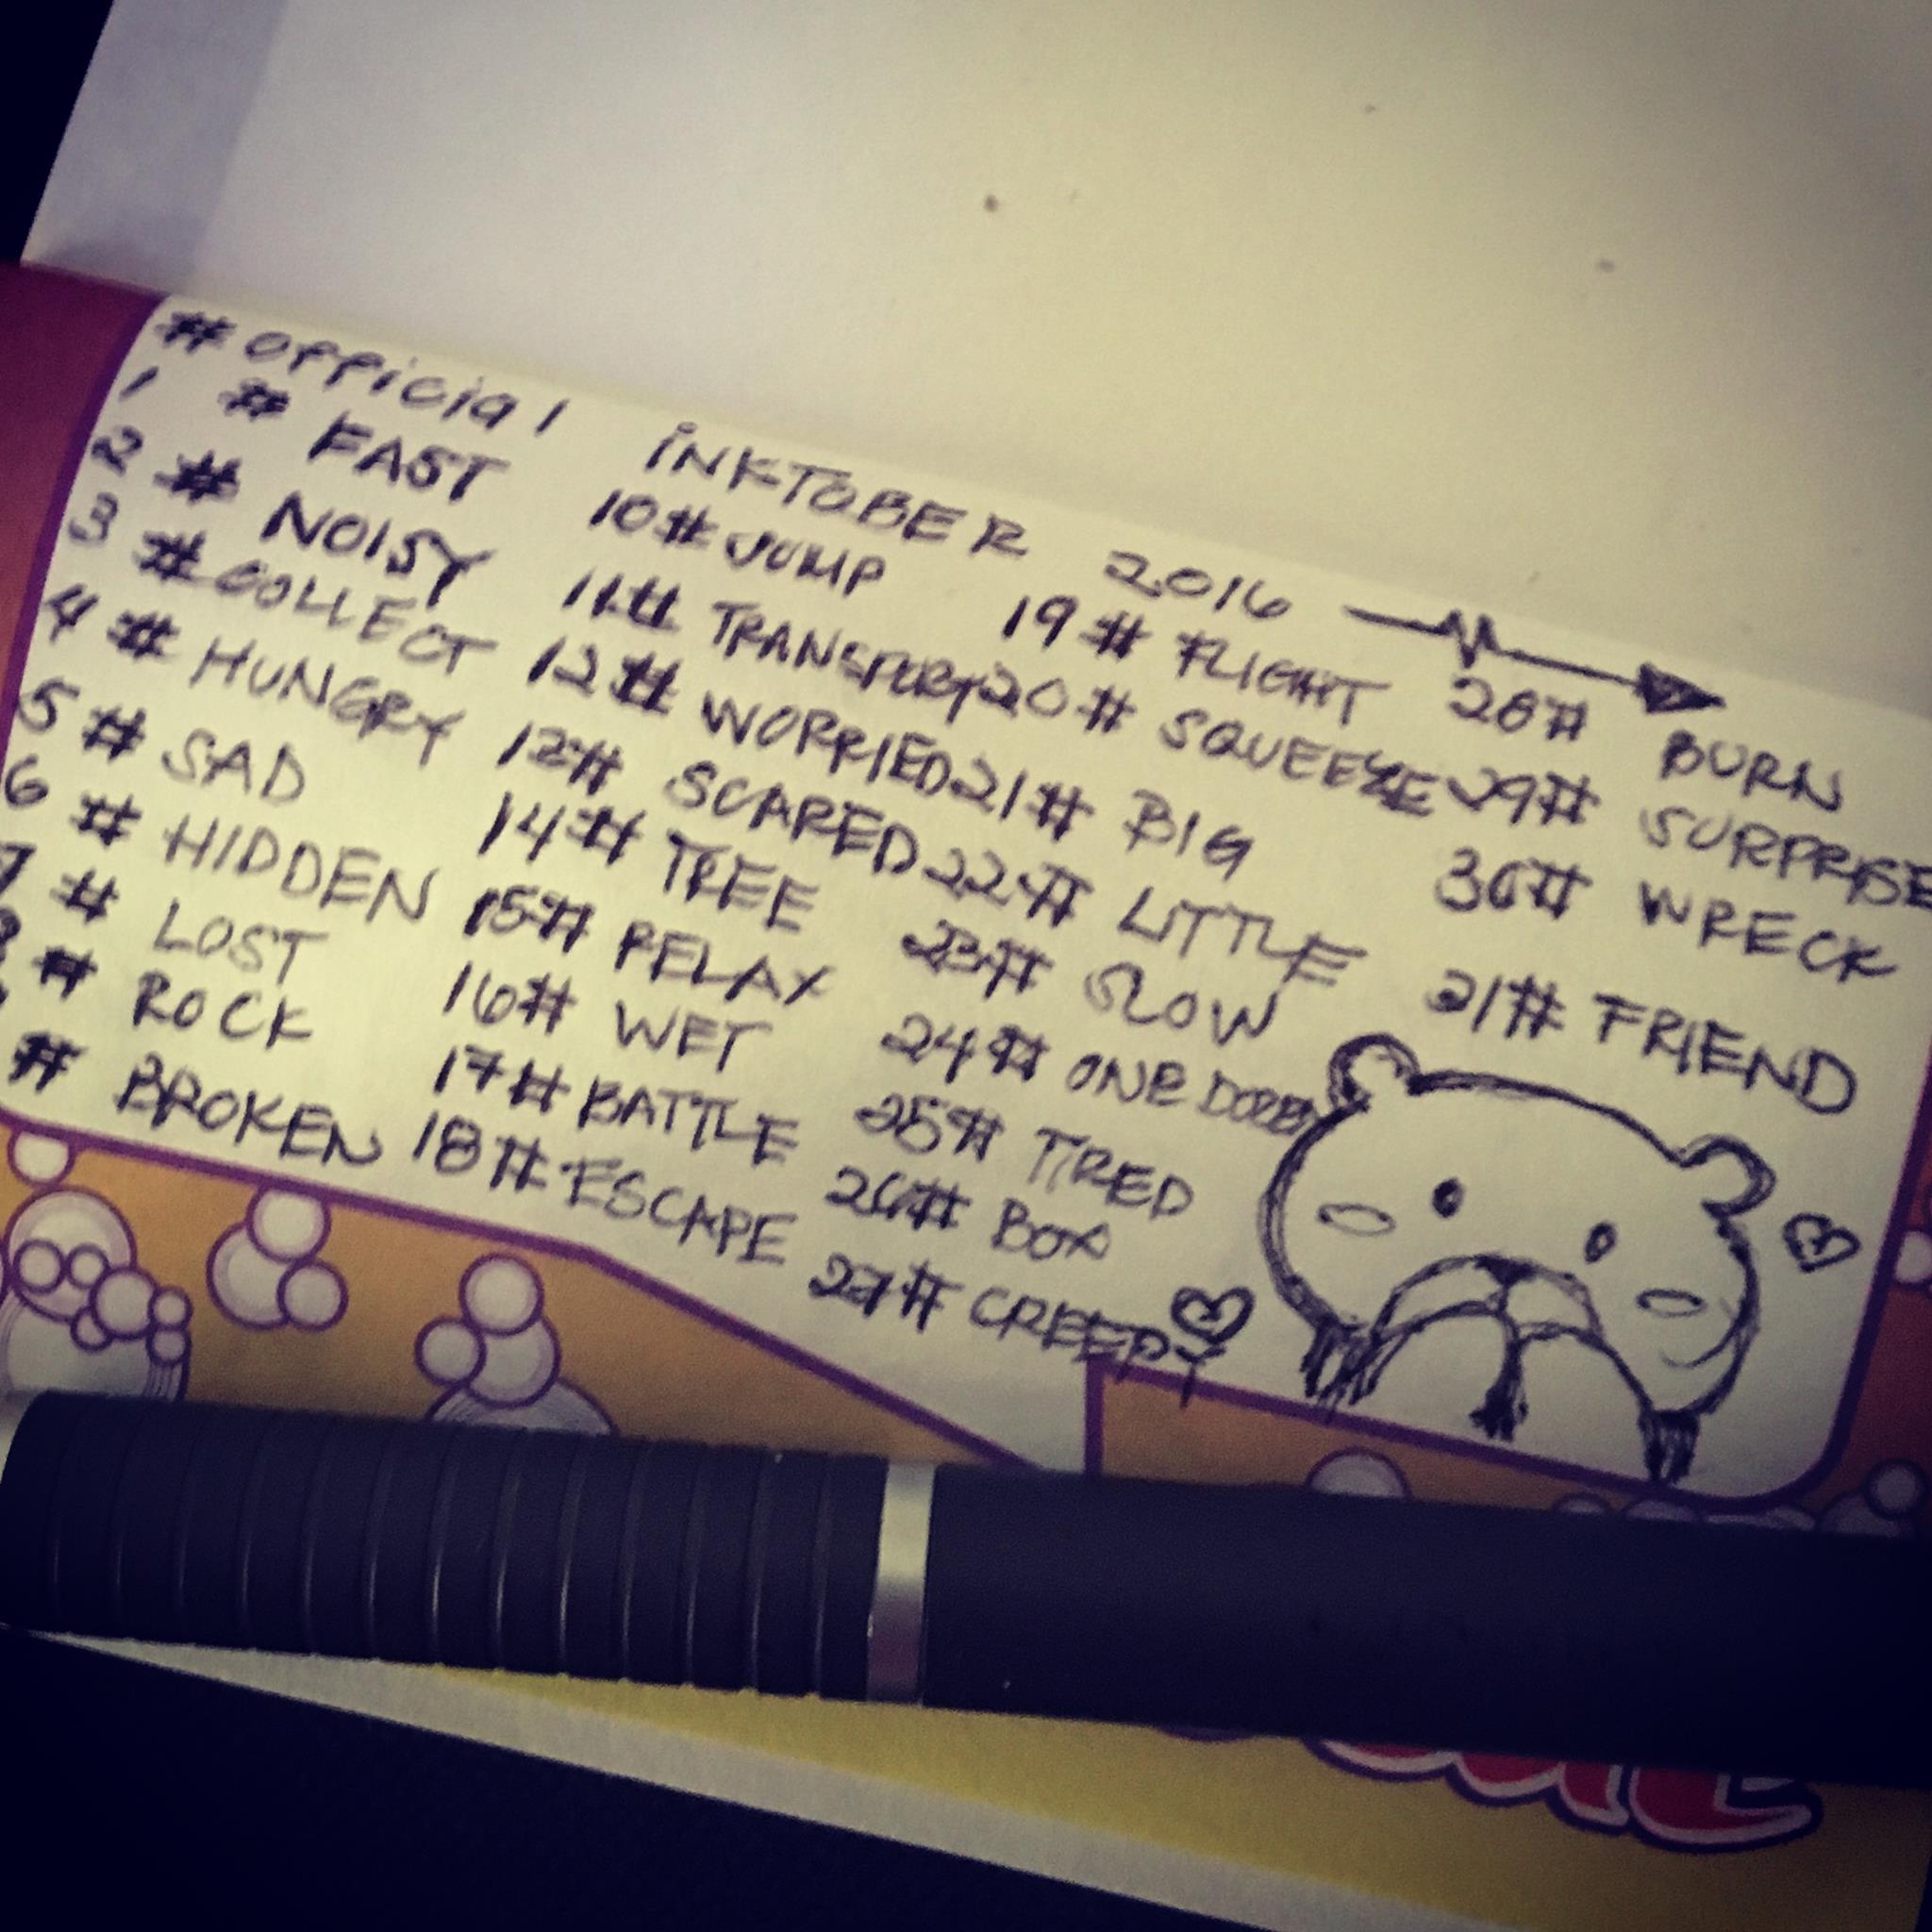 # official INKTOBER 2016
1 # FAST
2 # NOISY
3 # COLLECT
4 # HUNGRY
5 # SAD
6 # HIDDEN
7 # LOST
8 # ROCK
# BROKEN
10# JUMP
11# TRANSPORT
12# WORRIED
13# SCARED
14# TREE
15# RELAX
16# WET
17# BATTLE
18# ESCAPE
19# FLIGHT
20# SQUEEZE
21# BIG
22# LITTLE
23# SLOW
24# ONE
25# TIRED
26# BOX
27# CREEPY
28# BURN
29# SURPRISE
30# WRECK
31# FRIEND